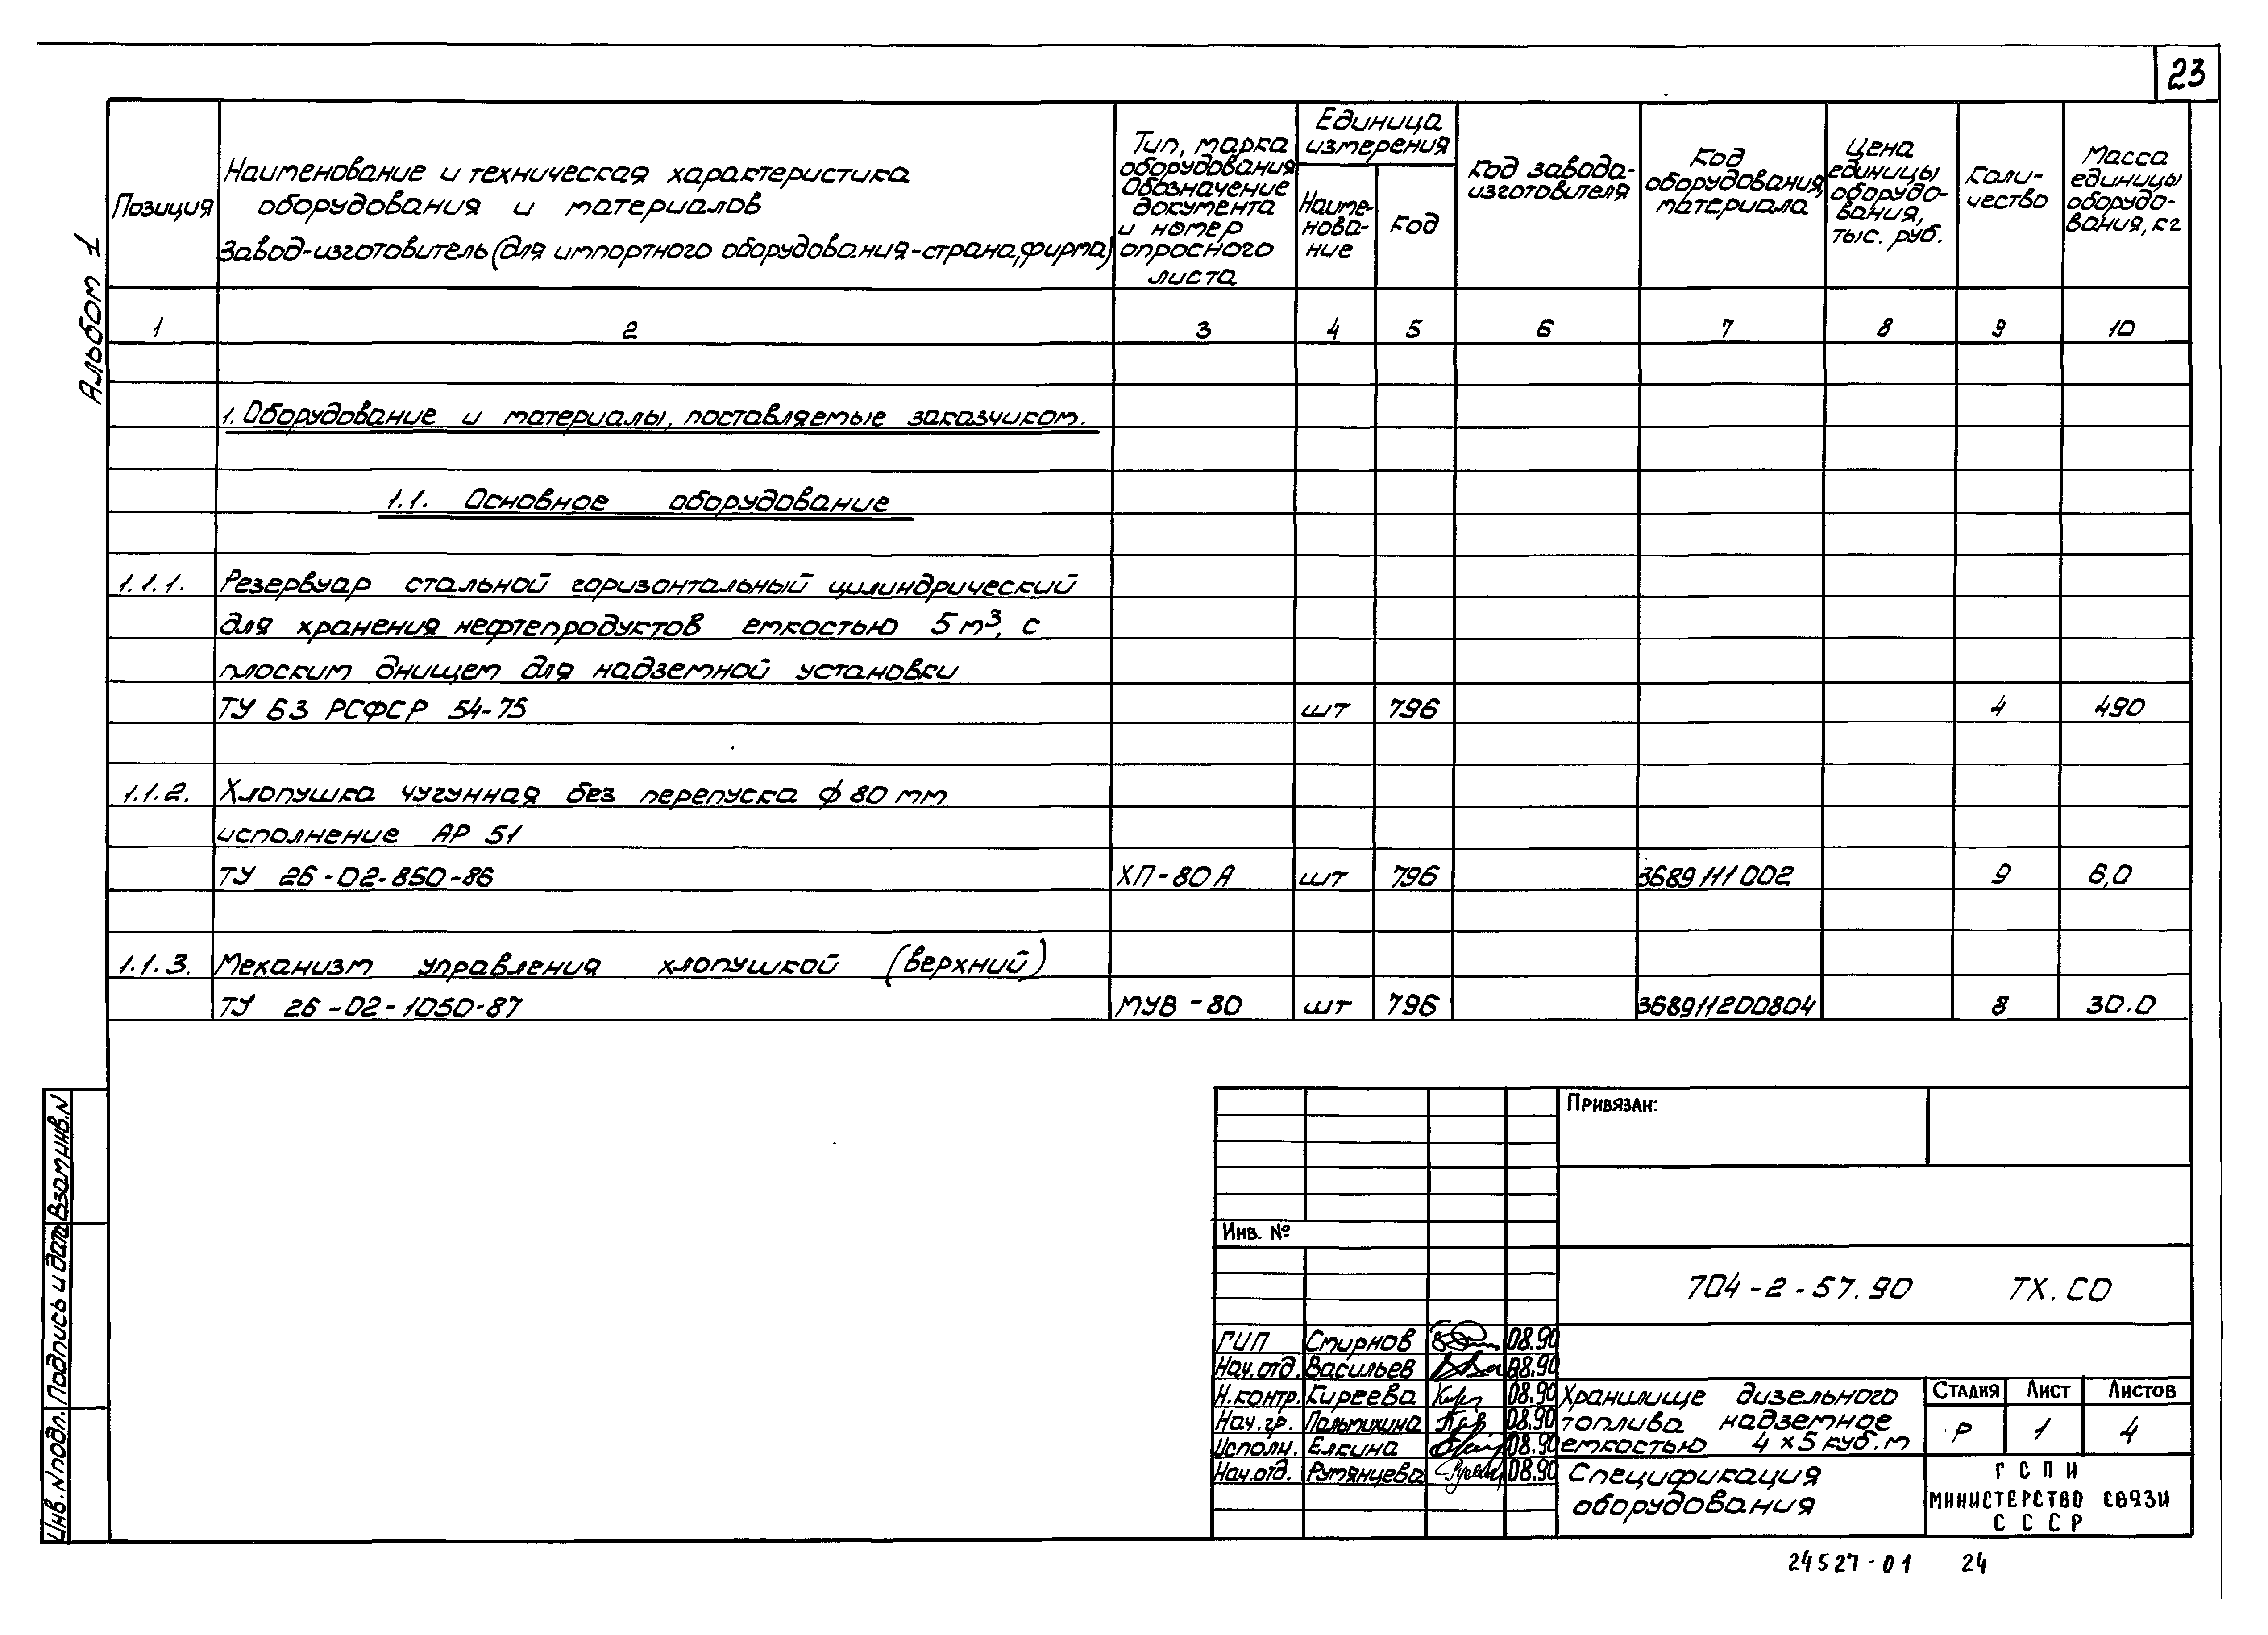 23
Альбом 1
Позиция
Наименование и техническая характеристика
оборудования и материалов
Завод-изготовитель (для импортного оборудования-страна, фирма)
Тип, марка
оборудования
Обозначение
документа
и номер
опросного
листа
Единица
измерения
Наиме-
нова-
ние
Код
Код завода-
изготовителя
Код
оборудования,
материала
Цена
единицы
оборудо-
вания,
тыс. руб.
Коли-
чество
Масса
единицы
оборудо-
вания, кг
1 2 3 4 5 6 7 8 9 10
1. Оборудование и материалы, поставляемые заказчиком.
1.1. Основное оборудование
1.1.1. Резервуар стальной горизонтальный цилиндрический
для хранения нефтепродуктов емкостью 5 м³, с
плоским днищем для надземной установки
ТУ 63 РСФСР 54-75 шт 796 4 490
1.1.2. Хлопушка чугунная без перепуска ф 80 мм
исполнение АР 51
ТУ 26-02-850-86 ХП-80А шт 796 3689111002 9 6,0
1.1.3. Механизм управления хлопушкой (верхний)
ТУ 26-02-1050-87 МУВ-80 шт 796 368911200804 8 30.0
Взам.инв.N
Подпись и дата
Инв.N подл.
Привязан:
Инв. №
704-2-57.90 ТХ.СО
ГИП Смирнов 08.90
Нач.отд. Васильев 08.90
Н.контр. Киреева 08.90
Нач.гр. Пальмихина 08.90
Исполн. Елкина 08.90
Нач.отд. Румянцева 08.90
Хранилище дизельного
топлива надземное
емкостью 4 х 5 куб.м
Стадия Лист Листов
Р 1 4
Спецификация
оборудования
ГСПИ
МИНИСТЕРСТВО СВЯЗИ
СССР
24527-01 24